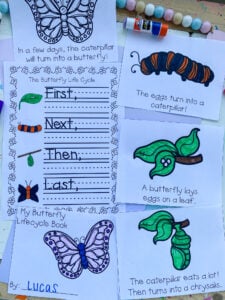 In a few days, the caterpillar
will turn into a butterfly!
The Butterfly Life Cycle
First,
Next,
Then,
Last,
My Butterfly
Lifecycle Book
By: Lucas
The eggs turn into a
caterpillar!
A butterfly lays
eggs on a leaf.
The caterpillar eats a lot!
Then turns into a chrysalis.